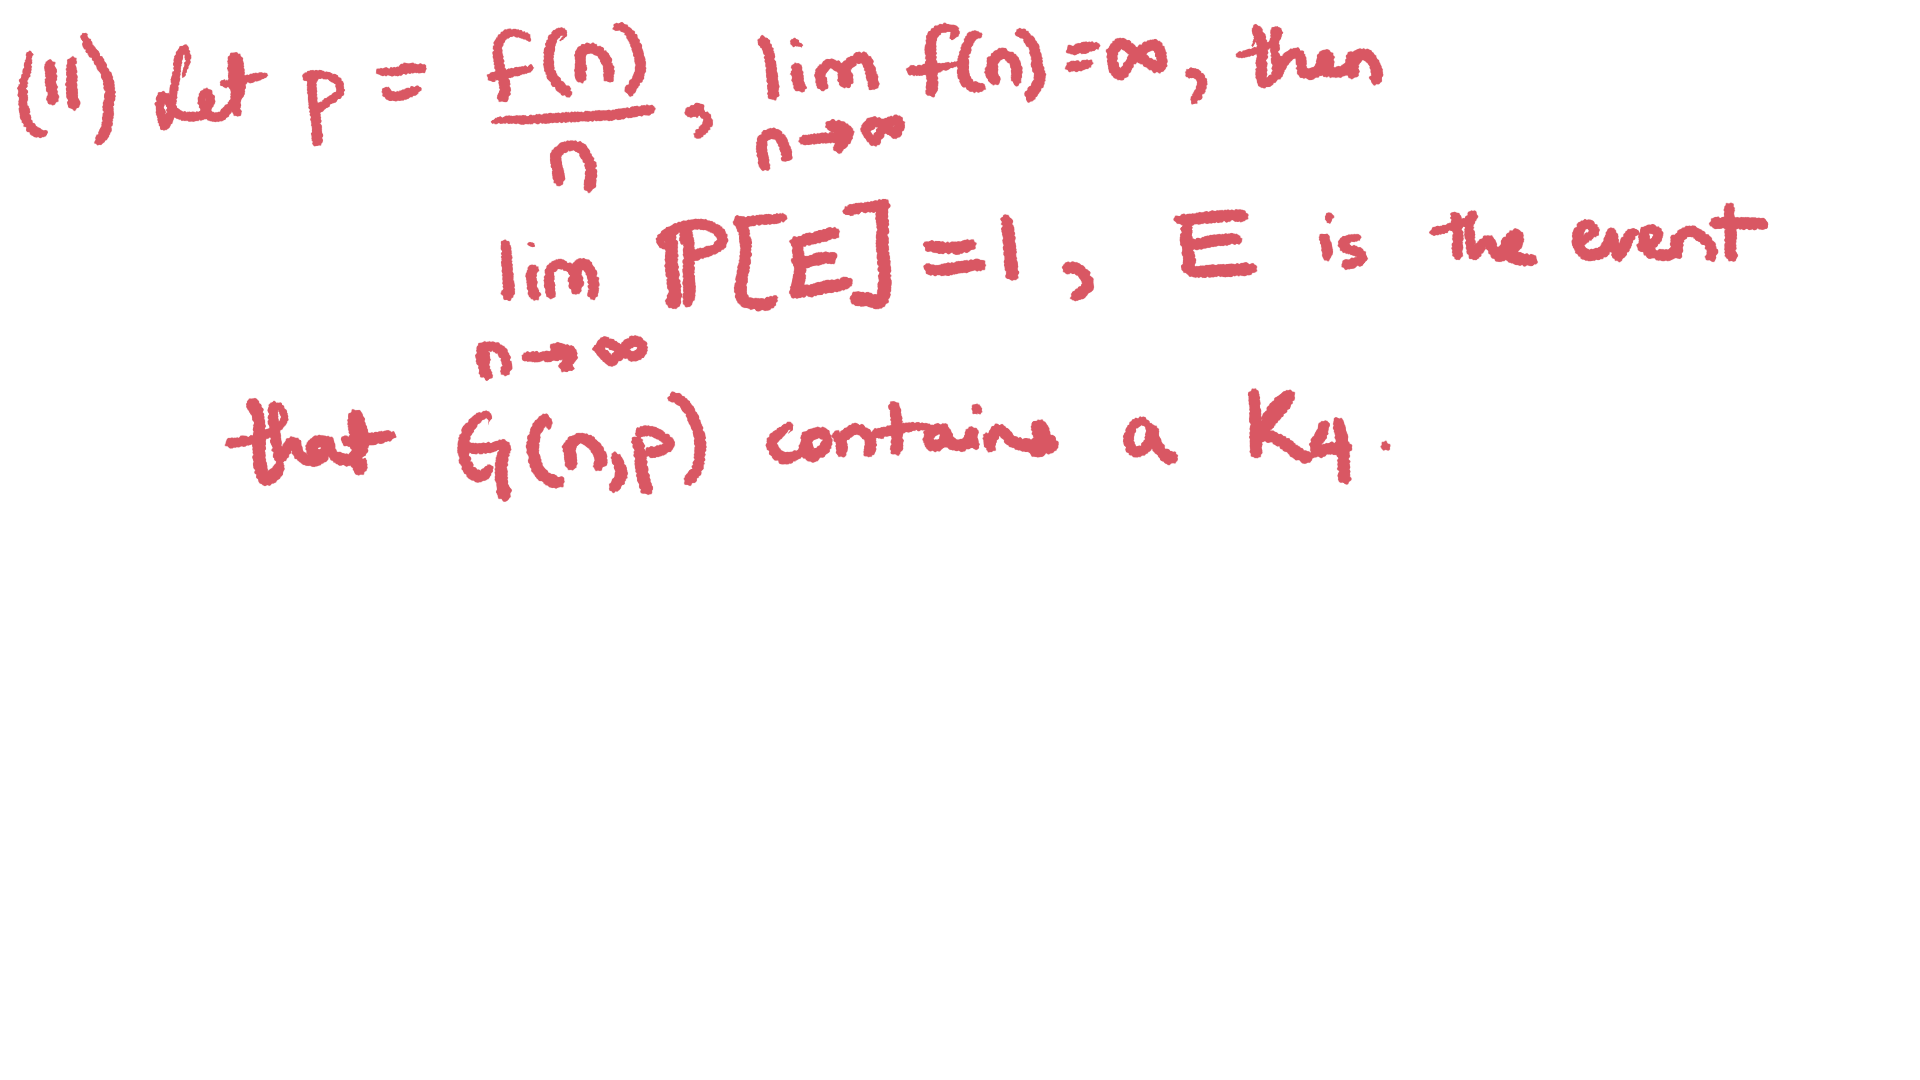 (11) Let p = f(n)/n, lim_{n→∞} f(n) = ∞, then
lim_{n→∞} ℙ[E] = 1, E is the event
that G(n,p) contains a K₄.